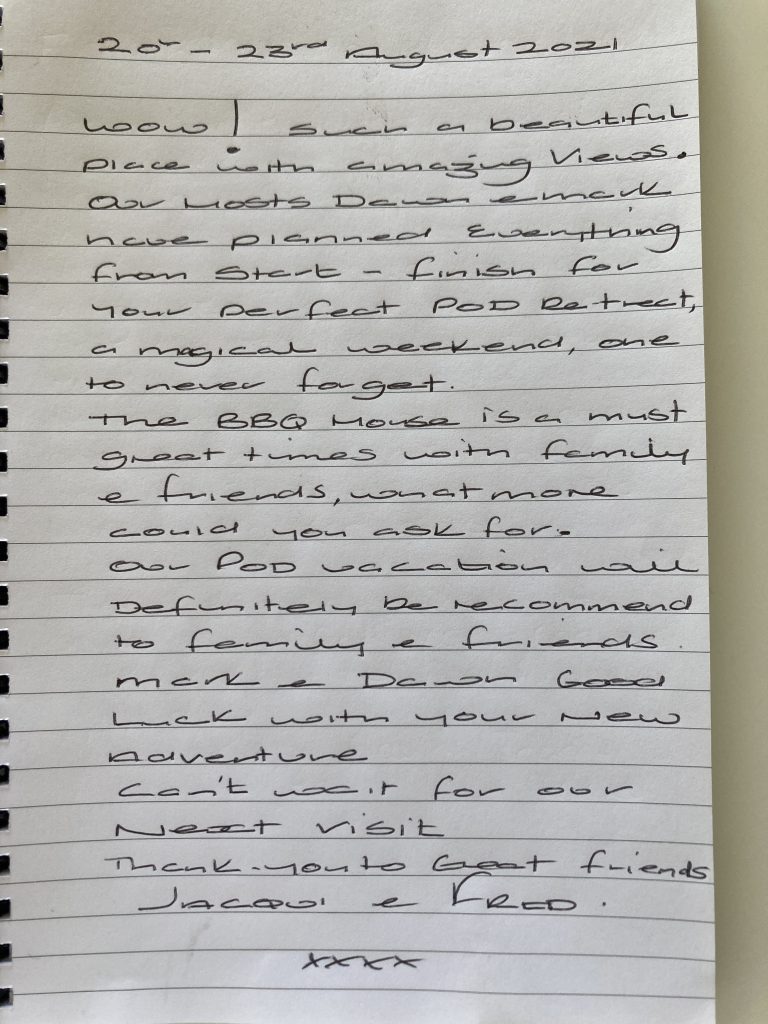 20th - 23rd August 2021
Woow! Such a beautiful
place with amazing Views.
Our Hosts Dawn & mark
have planned Everything
from Start - finish for
your perfect POD Retreat,
a magical weekend, one
to never forget.
The BBQ House is a must
great times with family
& friends, what more
could you ask for.
Our POD vacation will
Definitely be recommend
to family & friends.
Mark & Dawn Good
Luck with your New
Adventure
Can't wait for our
Next visit
Thank-you to Great friends
Jacqui & FRED.
xxxx